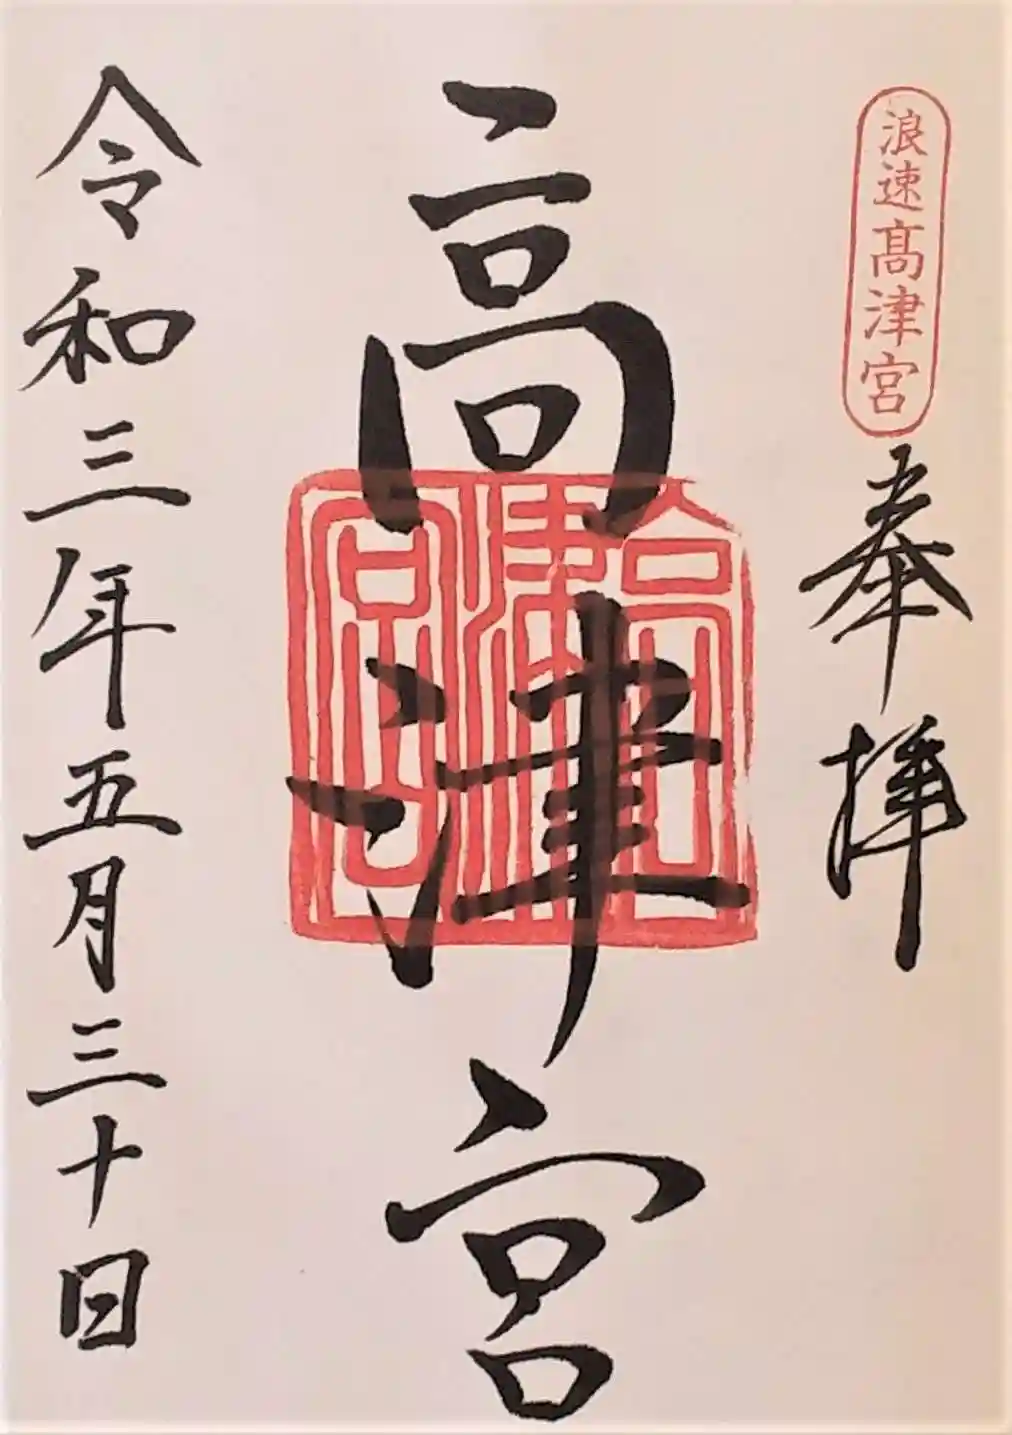 浪速髙津宮
奉拝
高津宮
高津宮
令和三年五月三十日